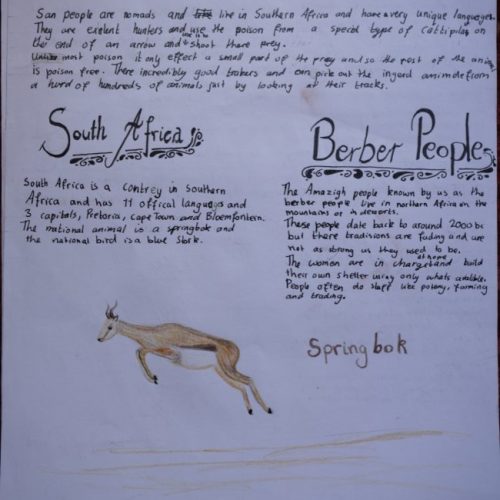 San people are nomads and live in Southern Africa and have a very unique languege
They are exelent hunters and use the poison from a specol type of Cattipilar on
the end of an arrow and use it to shoot there prey.
Unlike most poison it only effect a small part of the prey and so the rest of the animal
is poison free. There incredibly good trakers and can pick out the ingerd anime from
a herd of hundreds of animals just by looking at their tracks.
South Africa
South Africa is a contrey in Southern
Africa and has 11 offical languegs and
3 capitals, Pretoria, Cape Town and Bloemfontein.
The national animal is a springbok and
the national bird is a blue Stork.
Berber Peoples
The Amazigh people known by us as the
berber people live in northern Africa on the
mountains or in deserts.
These people date back to around 2000 bc
but there traditions are fading and are
not as strong as they used to be.
The women are in charge at home and build
their own shelter using only whats availible.
People often do stuff like potery, farming
and trading.
Springbok